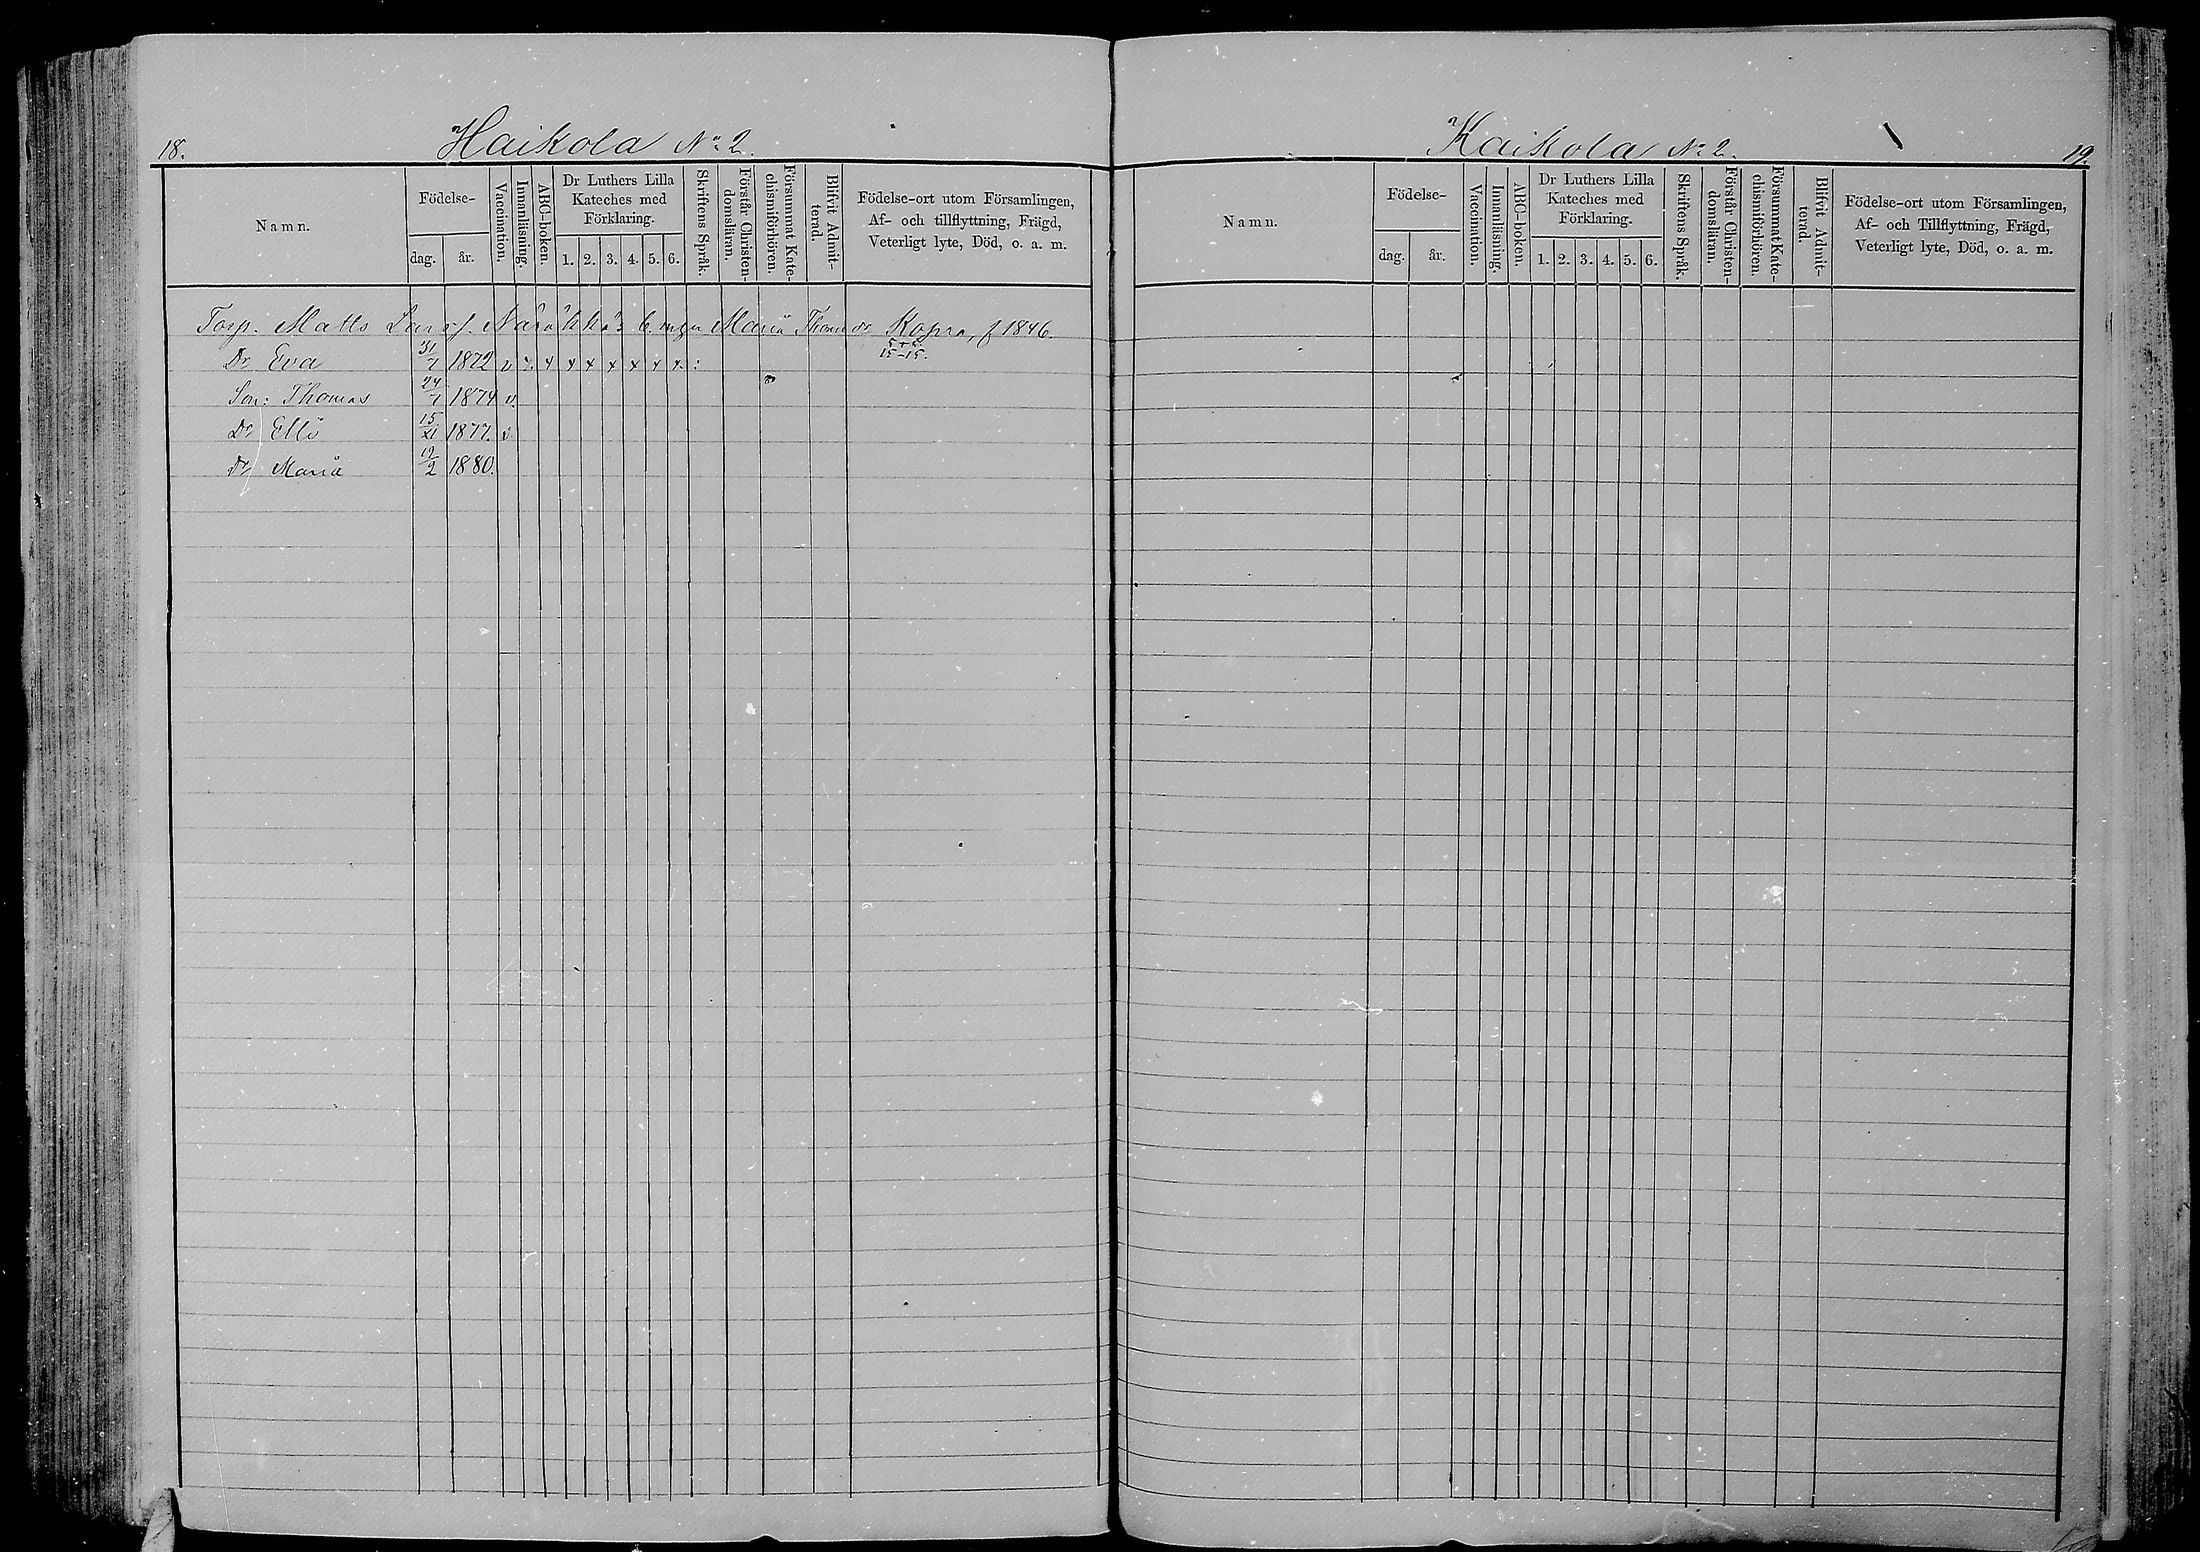 18.
Haikola No 2.
Namn.
Födelse-
dag. år.
Vaccination.
Innanläsning.
ABC-boken.
Dr Luthers Lilla
Kateches med
Förklaring.
1. 2. 3. 4. 5. 6.
Skriftens Språk.
Förstår Christen-
domsläran.
Försummat Kate-
chismiförhören.
Blifvit Admit-
terad.
Födelse-ort utom Församlingen,
Af- och tillflyttning, Frägd,
Veterligt lyte, Död, o. a. m.
Torp. Matts Maria Thomas dr Kopra, f 1846.
15-15.
Dr Eva 31/7 1872 v
Son: Thomas 24/7 1874 v.
Dr Elli 15/XI 1877. v
Dr Maria 19/2 1880.
Kaikola No 2.
19.
Namn.
Födelse-
dag. år.
Vaccination.
Innanläsning.
ABC-boken.
Dr Luthers Lilla
Kateches med
Förklaring.
1. 2. 3. 4. 5. 6.
Skriftens Språk.
Förstår Christen-
domsläran.
Försummat Kate-
chismiförhören.
Blifvit Admit-
terad.
Födelse-ort utom Församlingen,
Af- och Tillflyttning, Frägd,
Veterligt lyte, Död, o. a. m.